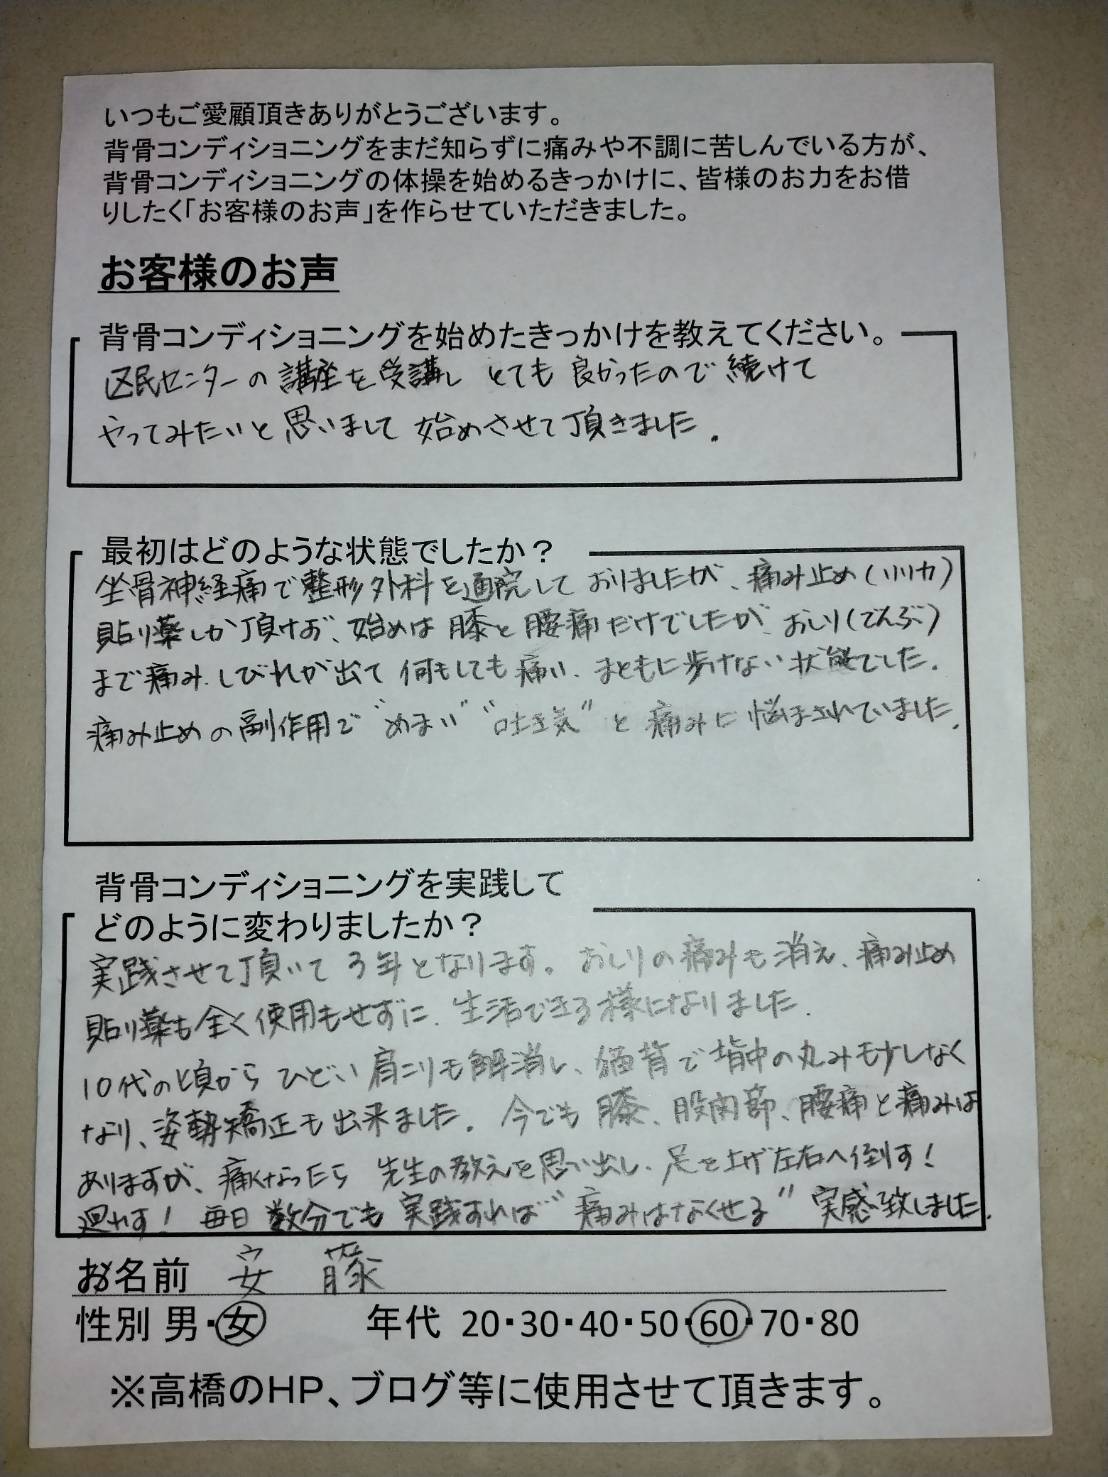 いつもご愛顧頂きありがとうございます。
背骨コンディショニングをまだ知らずに痛みや不調に苦しんでいる方が、
背骨コンディショニングの体操を始めるきっかけに、皆様のお力をお借
りしたく「お客様のお声」を作らせていただきました。
お客様のお声
背骨コンディショニングを始めたきっかけを教えてください。
区民センターの講座を受講し とても良かったので続けて
やってみたいと思いまして 始めさせて頂きました.
最初はどのような状態でしたか？
坐骨神経痛で整形外科を通院しておりましたが、痛み止め(リリカ)
貼り薬しか頂けず、始めは膝と腰痛だけでしたが、おしり(でんぶ)
まで痛み.しびれが出て 何もしても痛い、まともに歩けない状態でした.
痛み止めの副作用で"めまい" "吐き気"と痛みに悩まされていました.
背骨コンディショニングを実践して
どのように変わりましたか？
実践させて頂いて 3年となります。おしりの痛みも消え、痛み止め
貼り薬も全く使用もせずに、生活できる様になりました.
10代の頃から ひどい肩こりも解消し、猫背で背中の丸みも少しなく
なり、姿勢矯正も出来ました. 今でも膝、股関節、腰痛と痛みは
ありますが、痛くなったら 先生の教えを思い出し、足を上げ左右へ倒す!
廻す! 毎日 数分でも 実践すれば"痛みはなくせる" 実感致しました.
お名前 安 藤
性別 男・女 年代 20・30・40・50・60・70・80
※高橋のHP、ブログ等に使用させて頂きます。